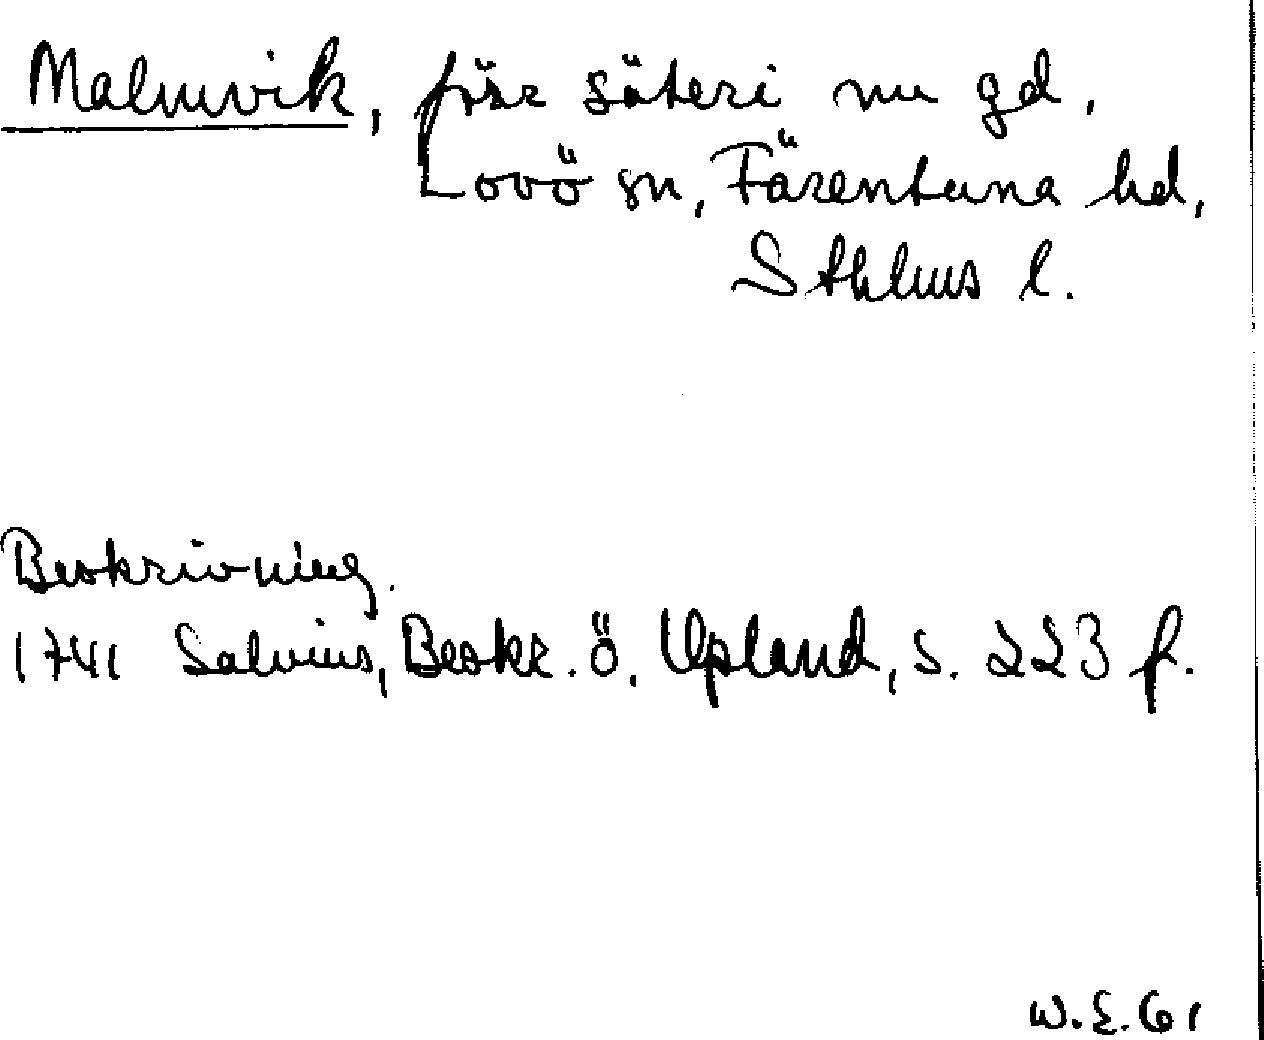 Malmvik, förr säteri nu gd.
Lovö sn, Färentuna hd,
Sthlms l.
Beskrivning.
1741 Salvius, Beskr. ö. Upland, s. 223 f.
W.E. 61